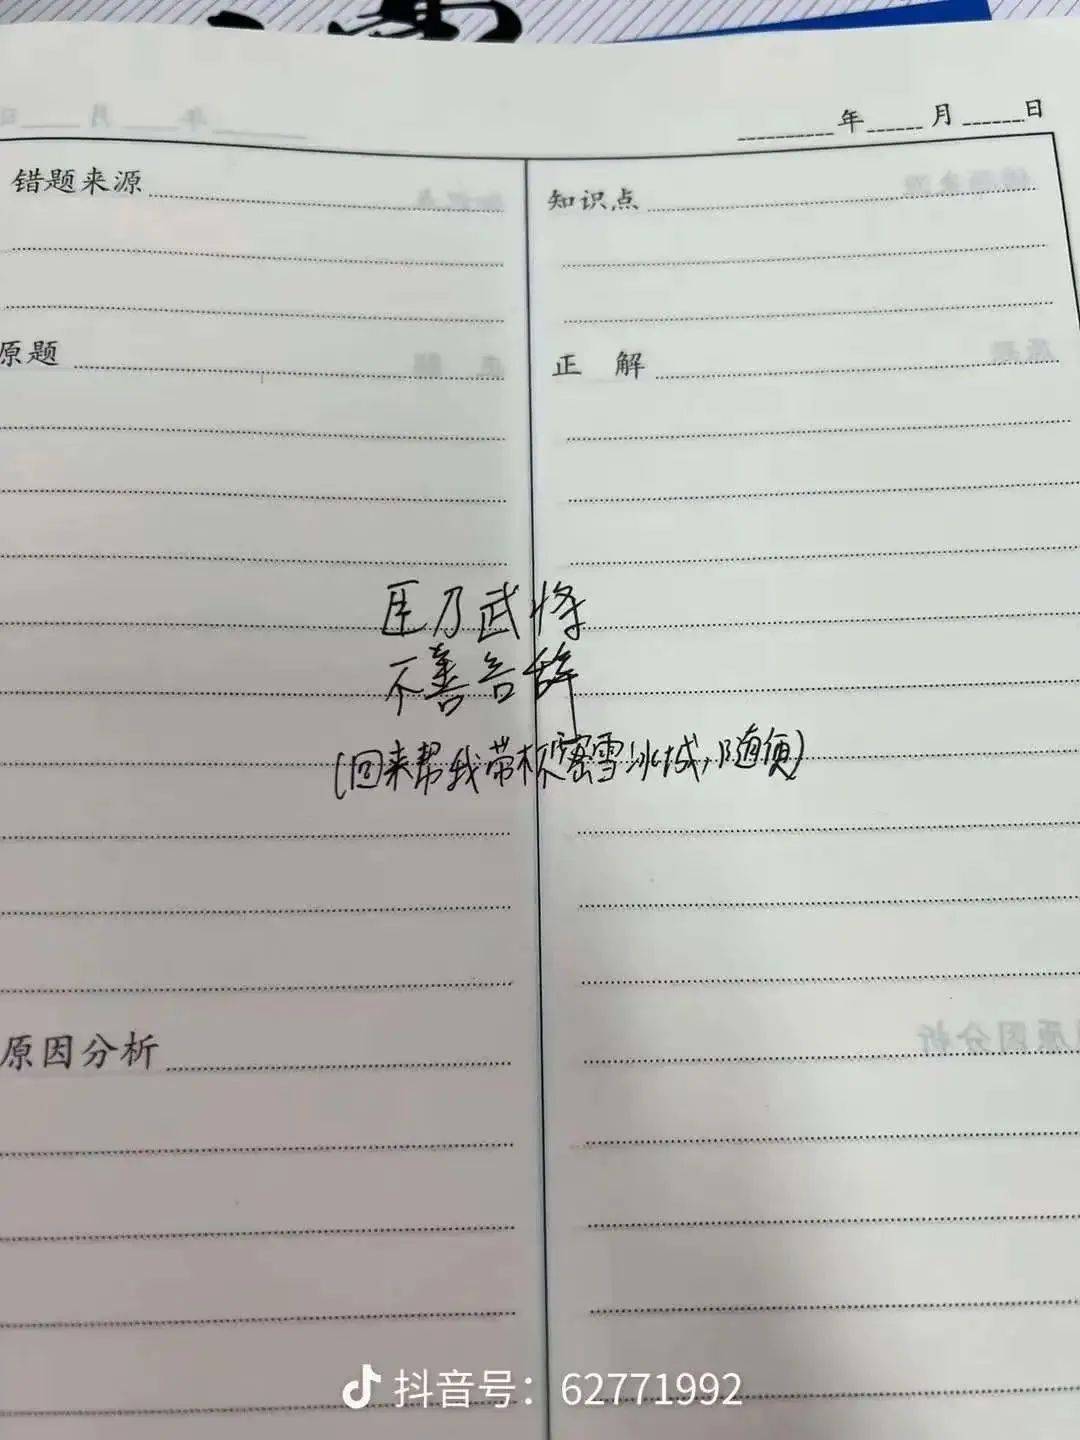 年 月 日
错题来源
知识点
原题
正 解
臣乃武将
不善告辞
(回来帮我带杯蜜雪冰城,随便)
原因分析
抖音号:62771992